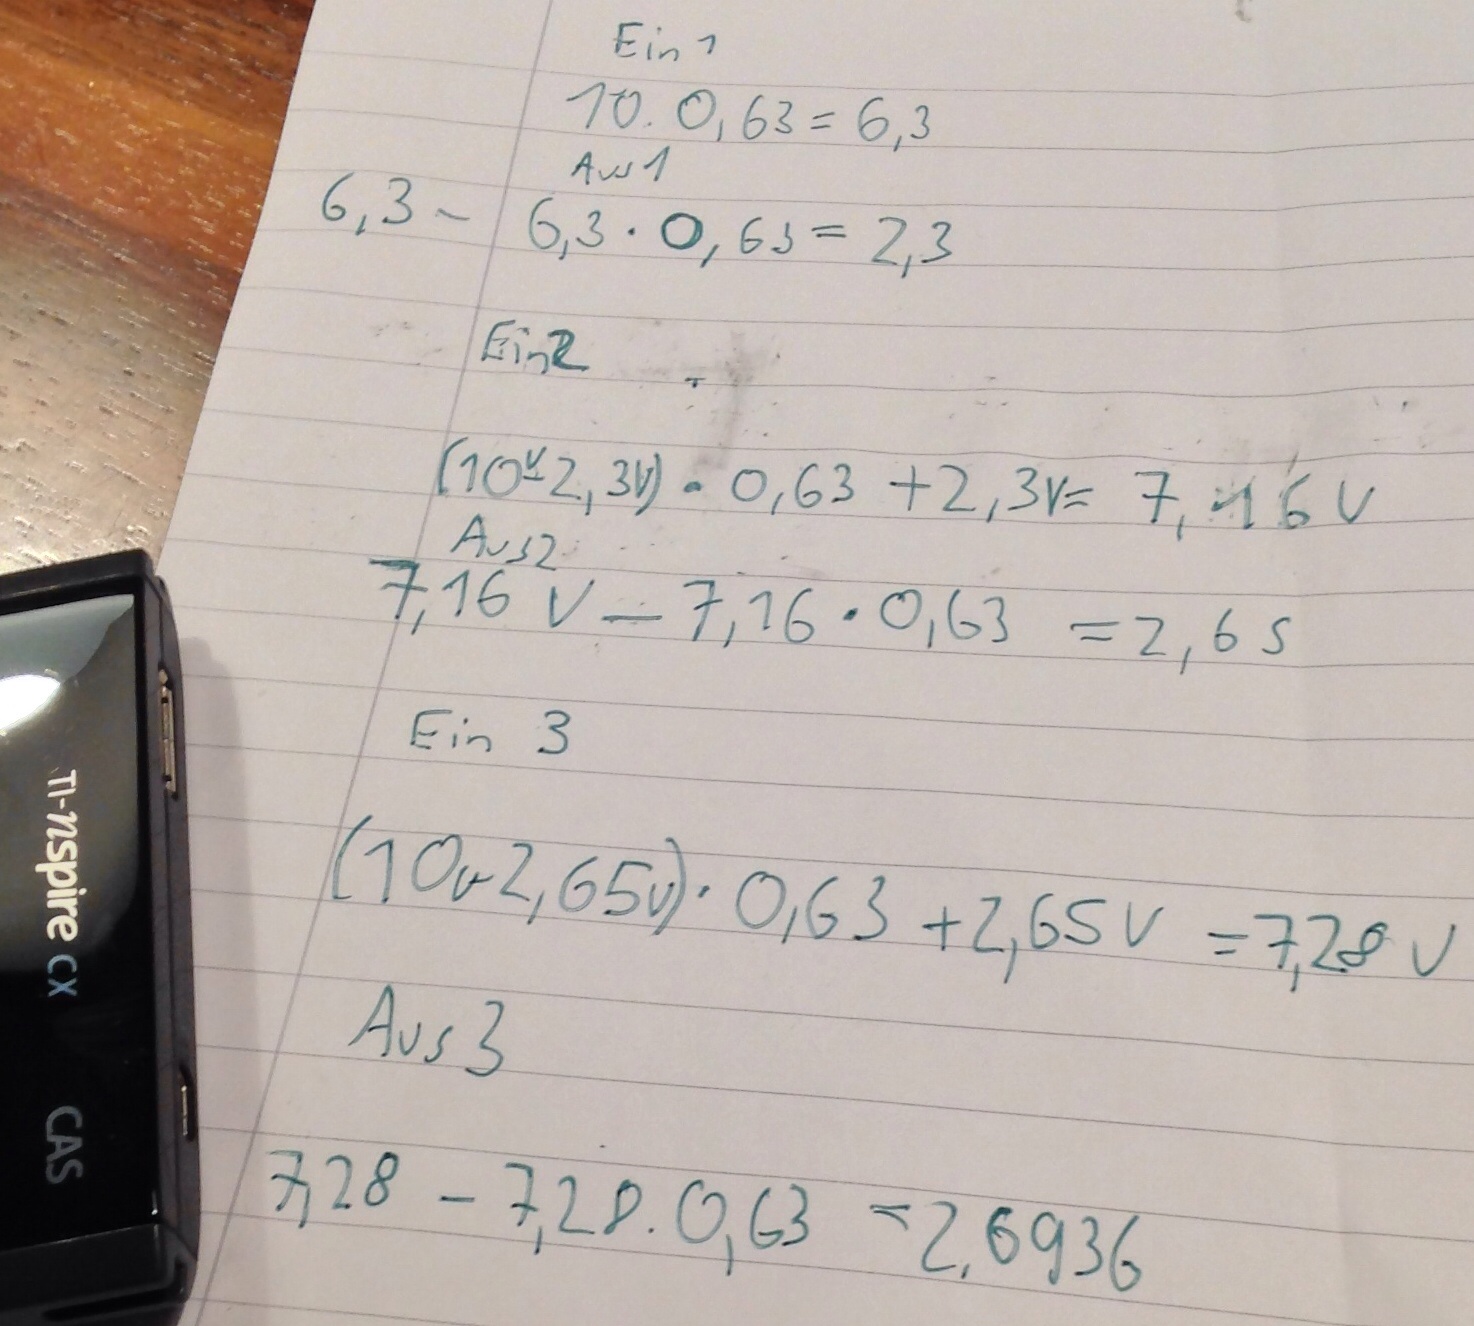 Ein 1
10. 0,63 = 6,3
Aus 1
6,3 - 6,3 · 0,63 = 2,3
Ein 2
(10V-2,3V) · 0,63 + 2,3V = 7,16 V
Aus 2
7,16 V - 7,16 · 0,63 = 2,65
Ein 3
(10V-2,65V) · 0,63 + 2,65 V = 7,28 V
Aus 3
7,28 - 7,28 . 0,63 = 2,6936
TI-nspire CX
CAS